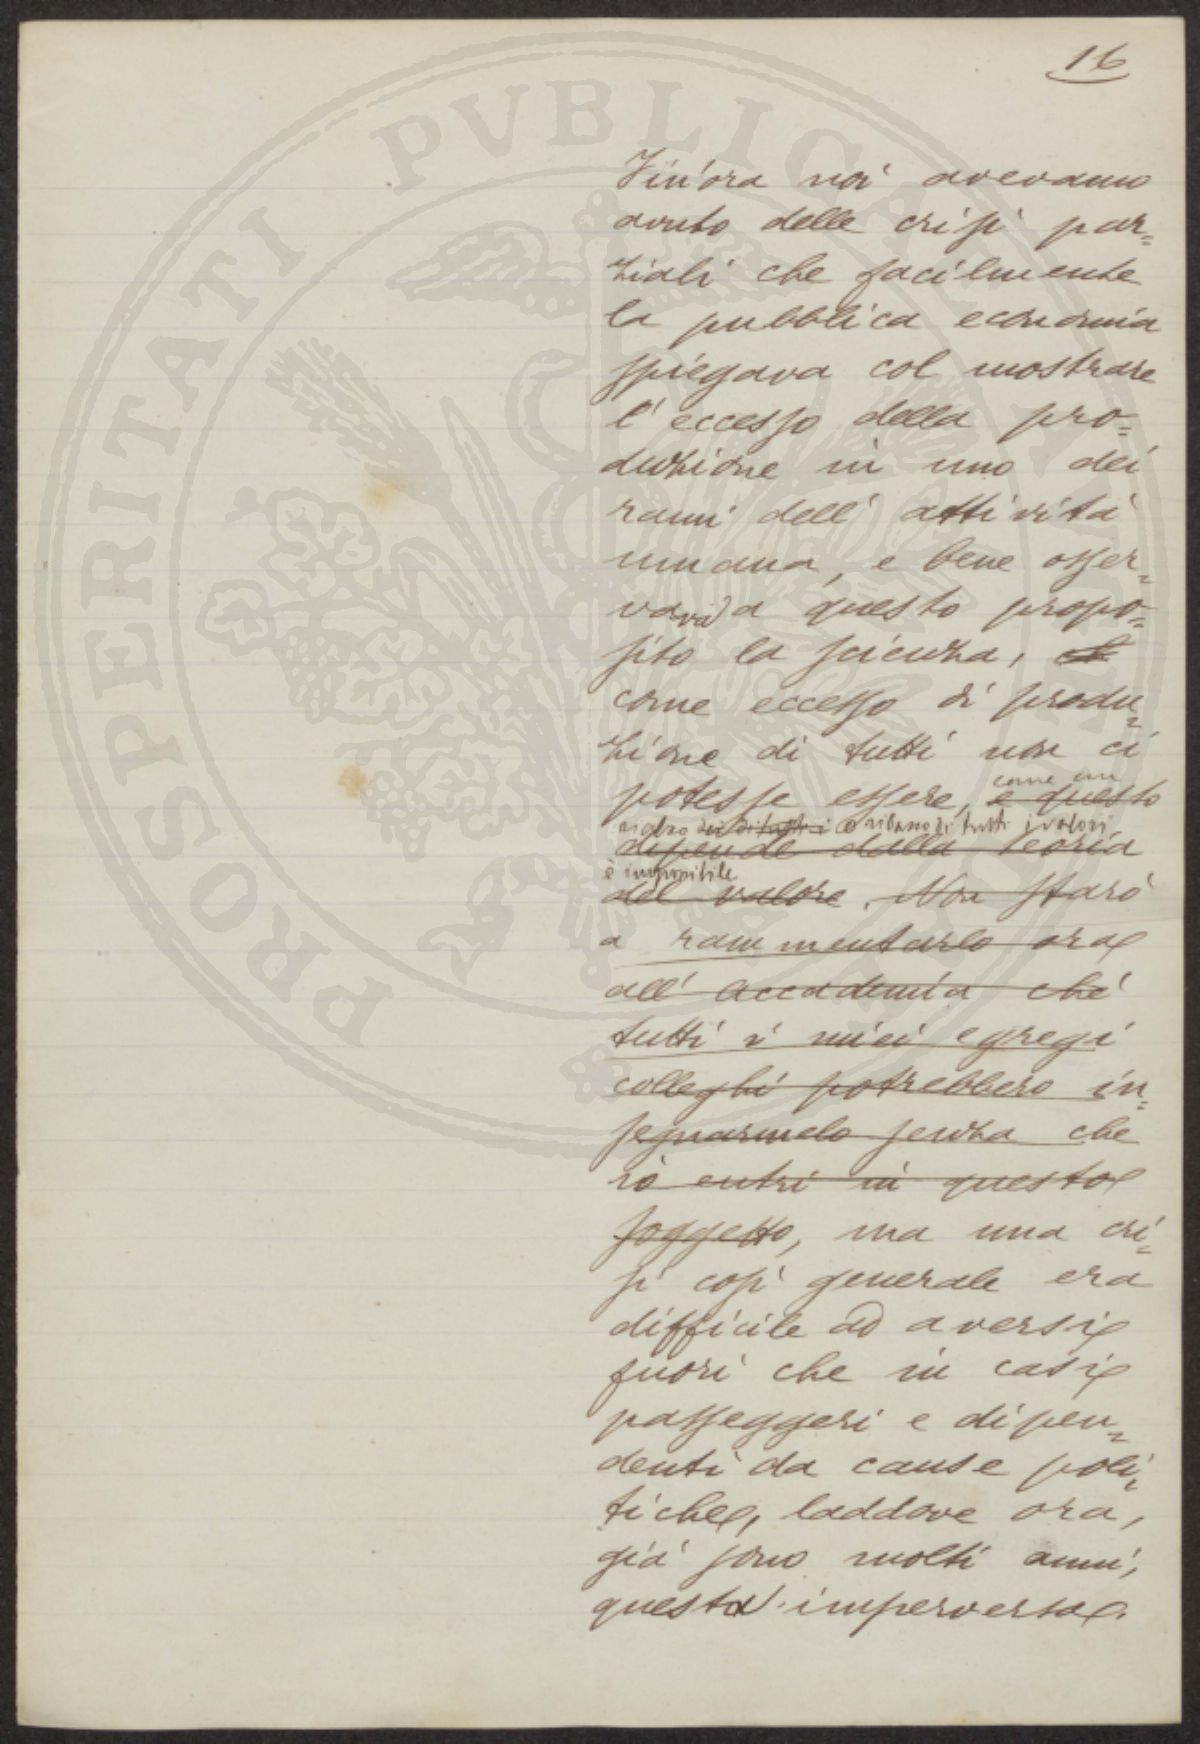 16
Fin'ora noi avevamo
avuto delle crisi par=
ziali che facilmente
la pubblica economia
spiegava col mostrare
l'eccesso della pro=
duzione in uno dei
rami dell'attività
umana, e bene osser=
vava a questo propo=
sito la scienza, che
come eccesso di produ=
zione di tutti non ci
potesse essere, e questo
come un
rialzo dei di tutti i o ribasso di tutti i valori
dipende dalla teoria
è impossibile
del valore. Non starò
a rammentarlo ora
all'accademia chè
tutti i miei egregi
colleghi potrebbero in=
segnarmelo senza che
io entri in questo
soggetto, ma una cri=
si così generale era
difficile ad aversi
fuori che in casi
passeggeri e dipen=
denti da cause poli=
tiche, laddove ora,
già sono molti anni,
questa imperversa.
PROSPERITATI PVBLICAE